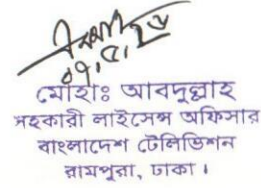 ০৭.৫.২৪
মোহাঃ আবদুল্লাহ
সহকারী লাইসেন্স অফিসার
বাংলাদেশ টেলিভিশন
রামপুরা, ঢাকা।